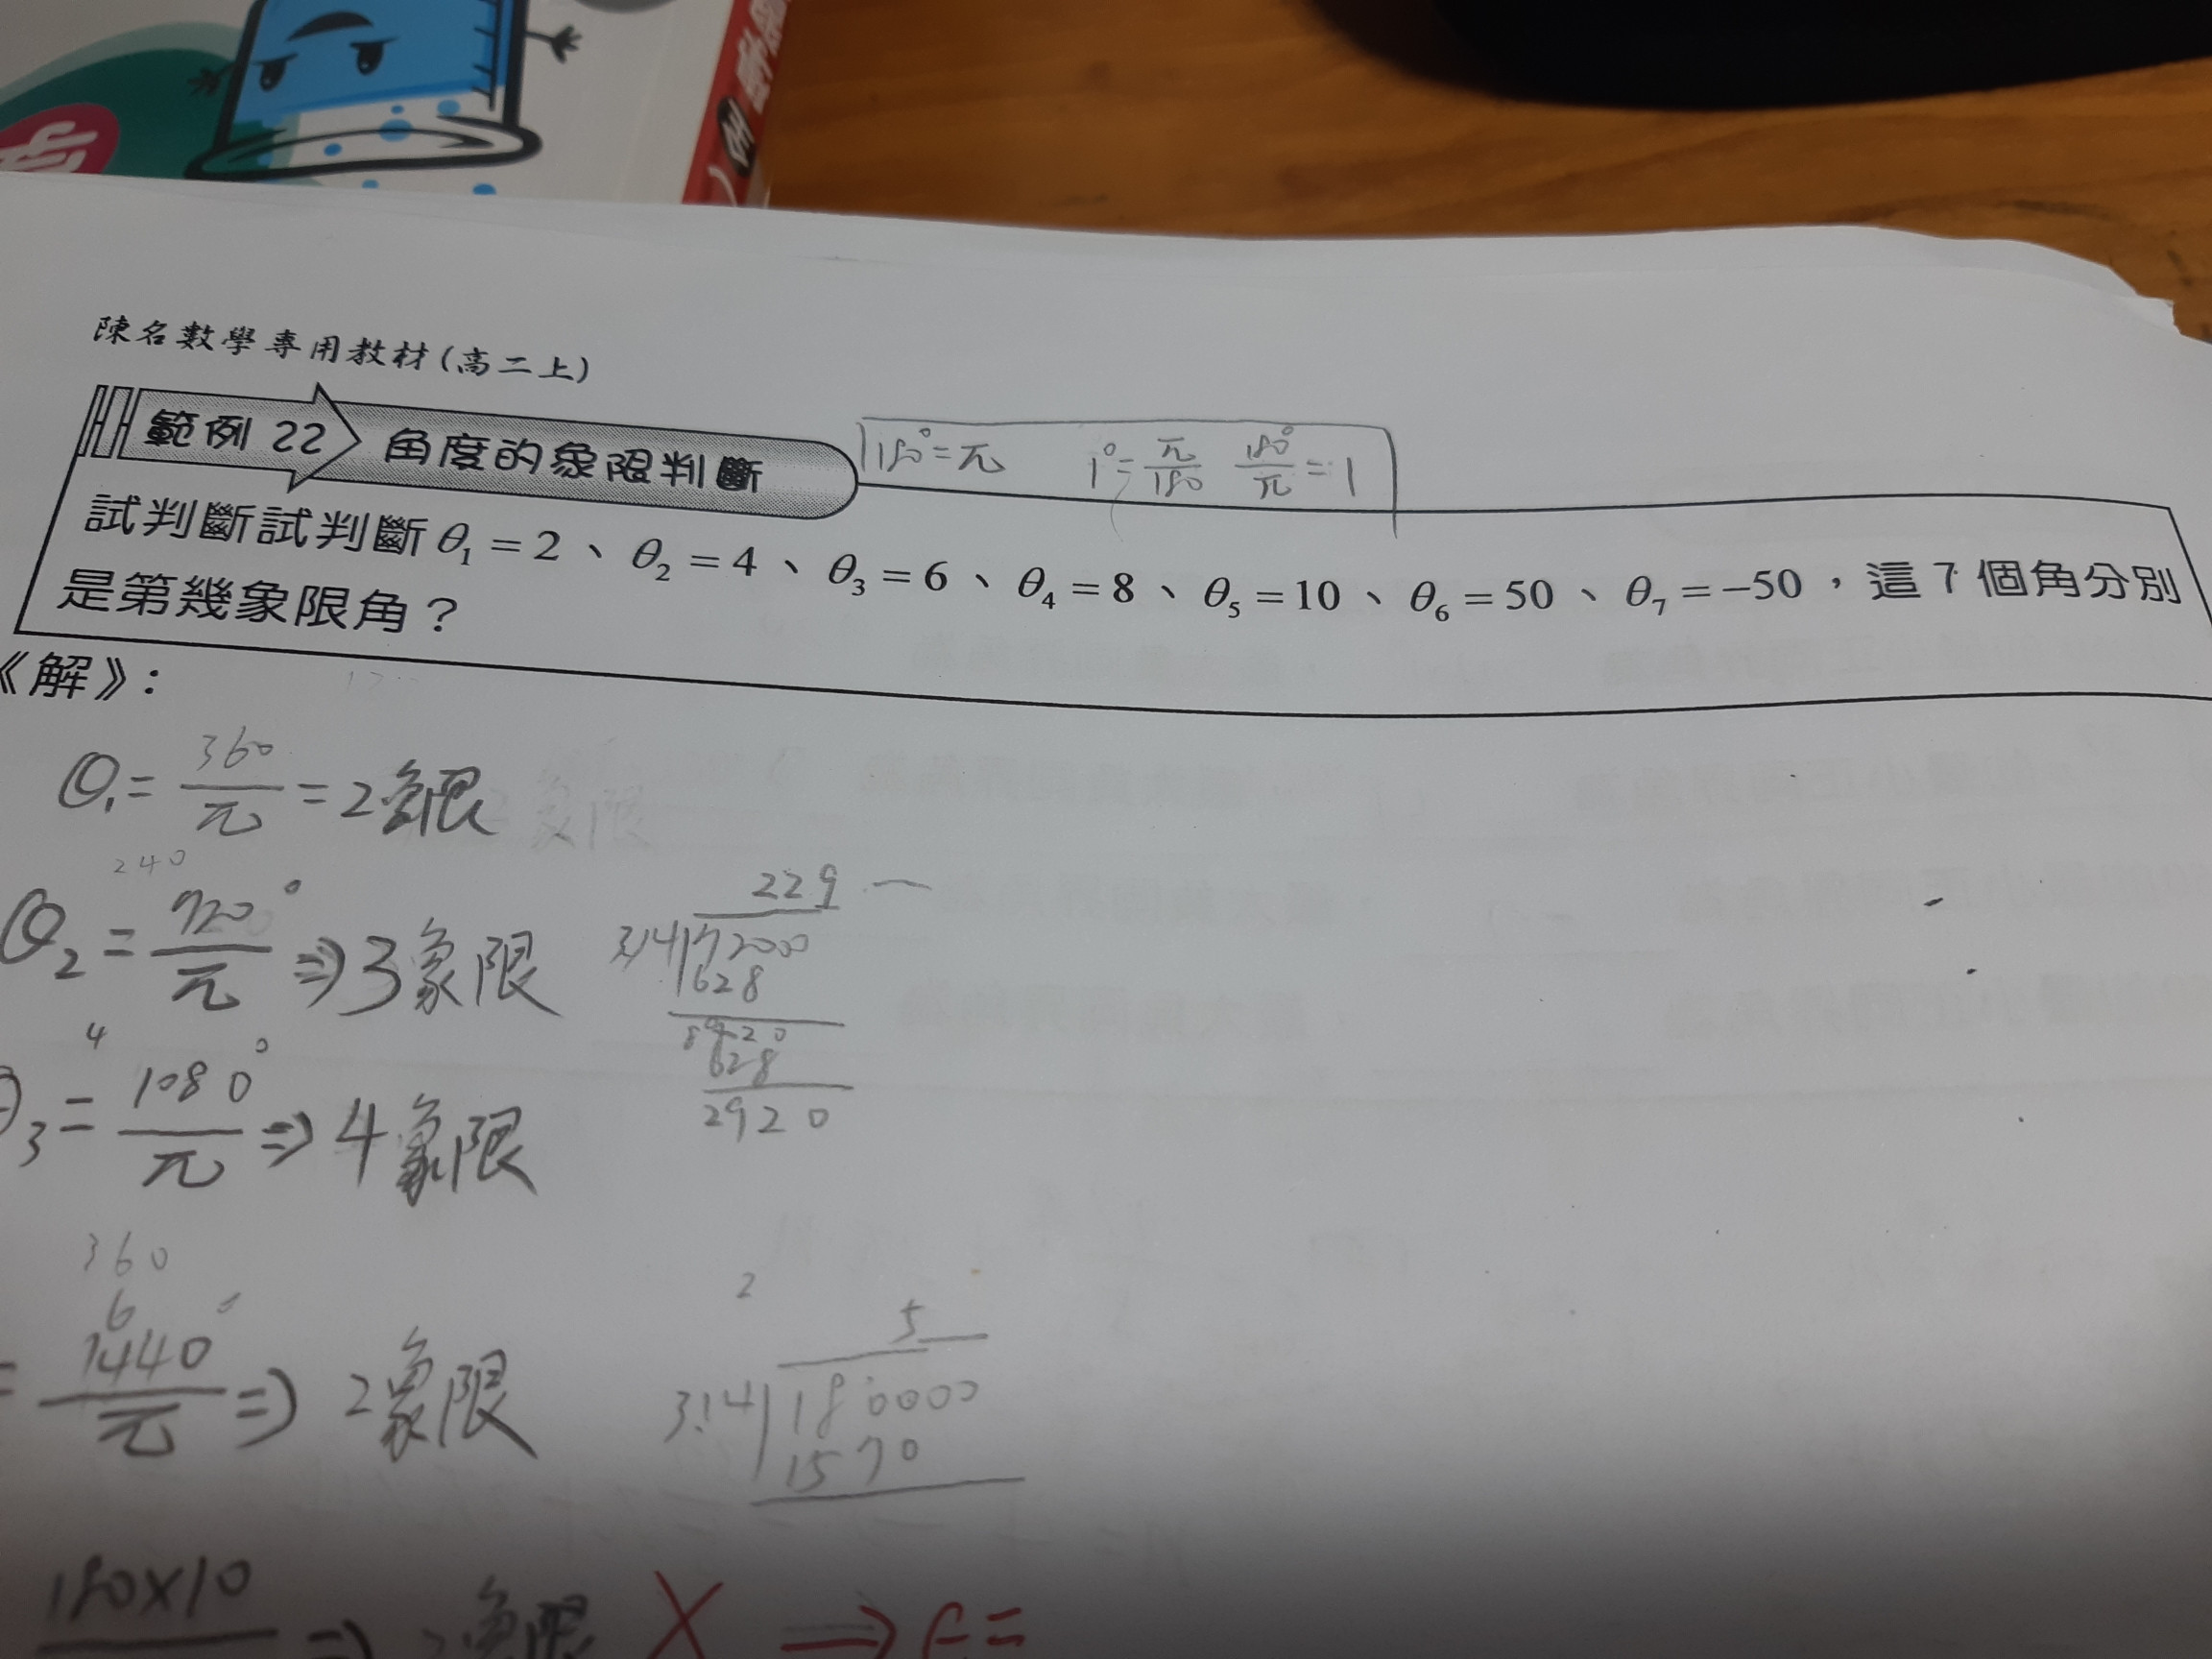 陳名數學專用教材(高二上)
範例 22 角度的象限判斷
180°=π 1°=π/180 180°/π=1
試判斷試判斷θ₁=2、θ₂=4、θ₃=6、θ₄=8、θ₅=10、θ₆=50、θ₇=-50,這7個角分別
是第幾象限角?
《解》:
θ₁=360/π=2象限
240
θ₂=720°/π⇒3象限
229
3.14 72000
628
920
628
2920
4
θ₃=1080°/π⇒4象限
360
6
=1440°/π⇒2象限
2
5
3.14 180000
1570
180×10
⇒ 象限 X ⇒